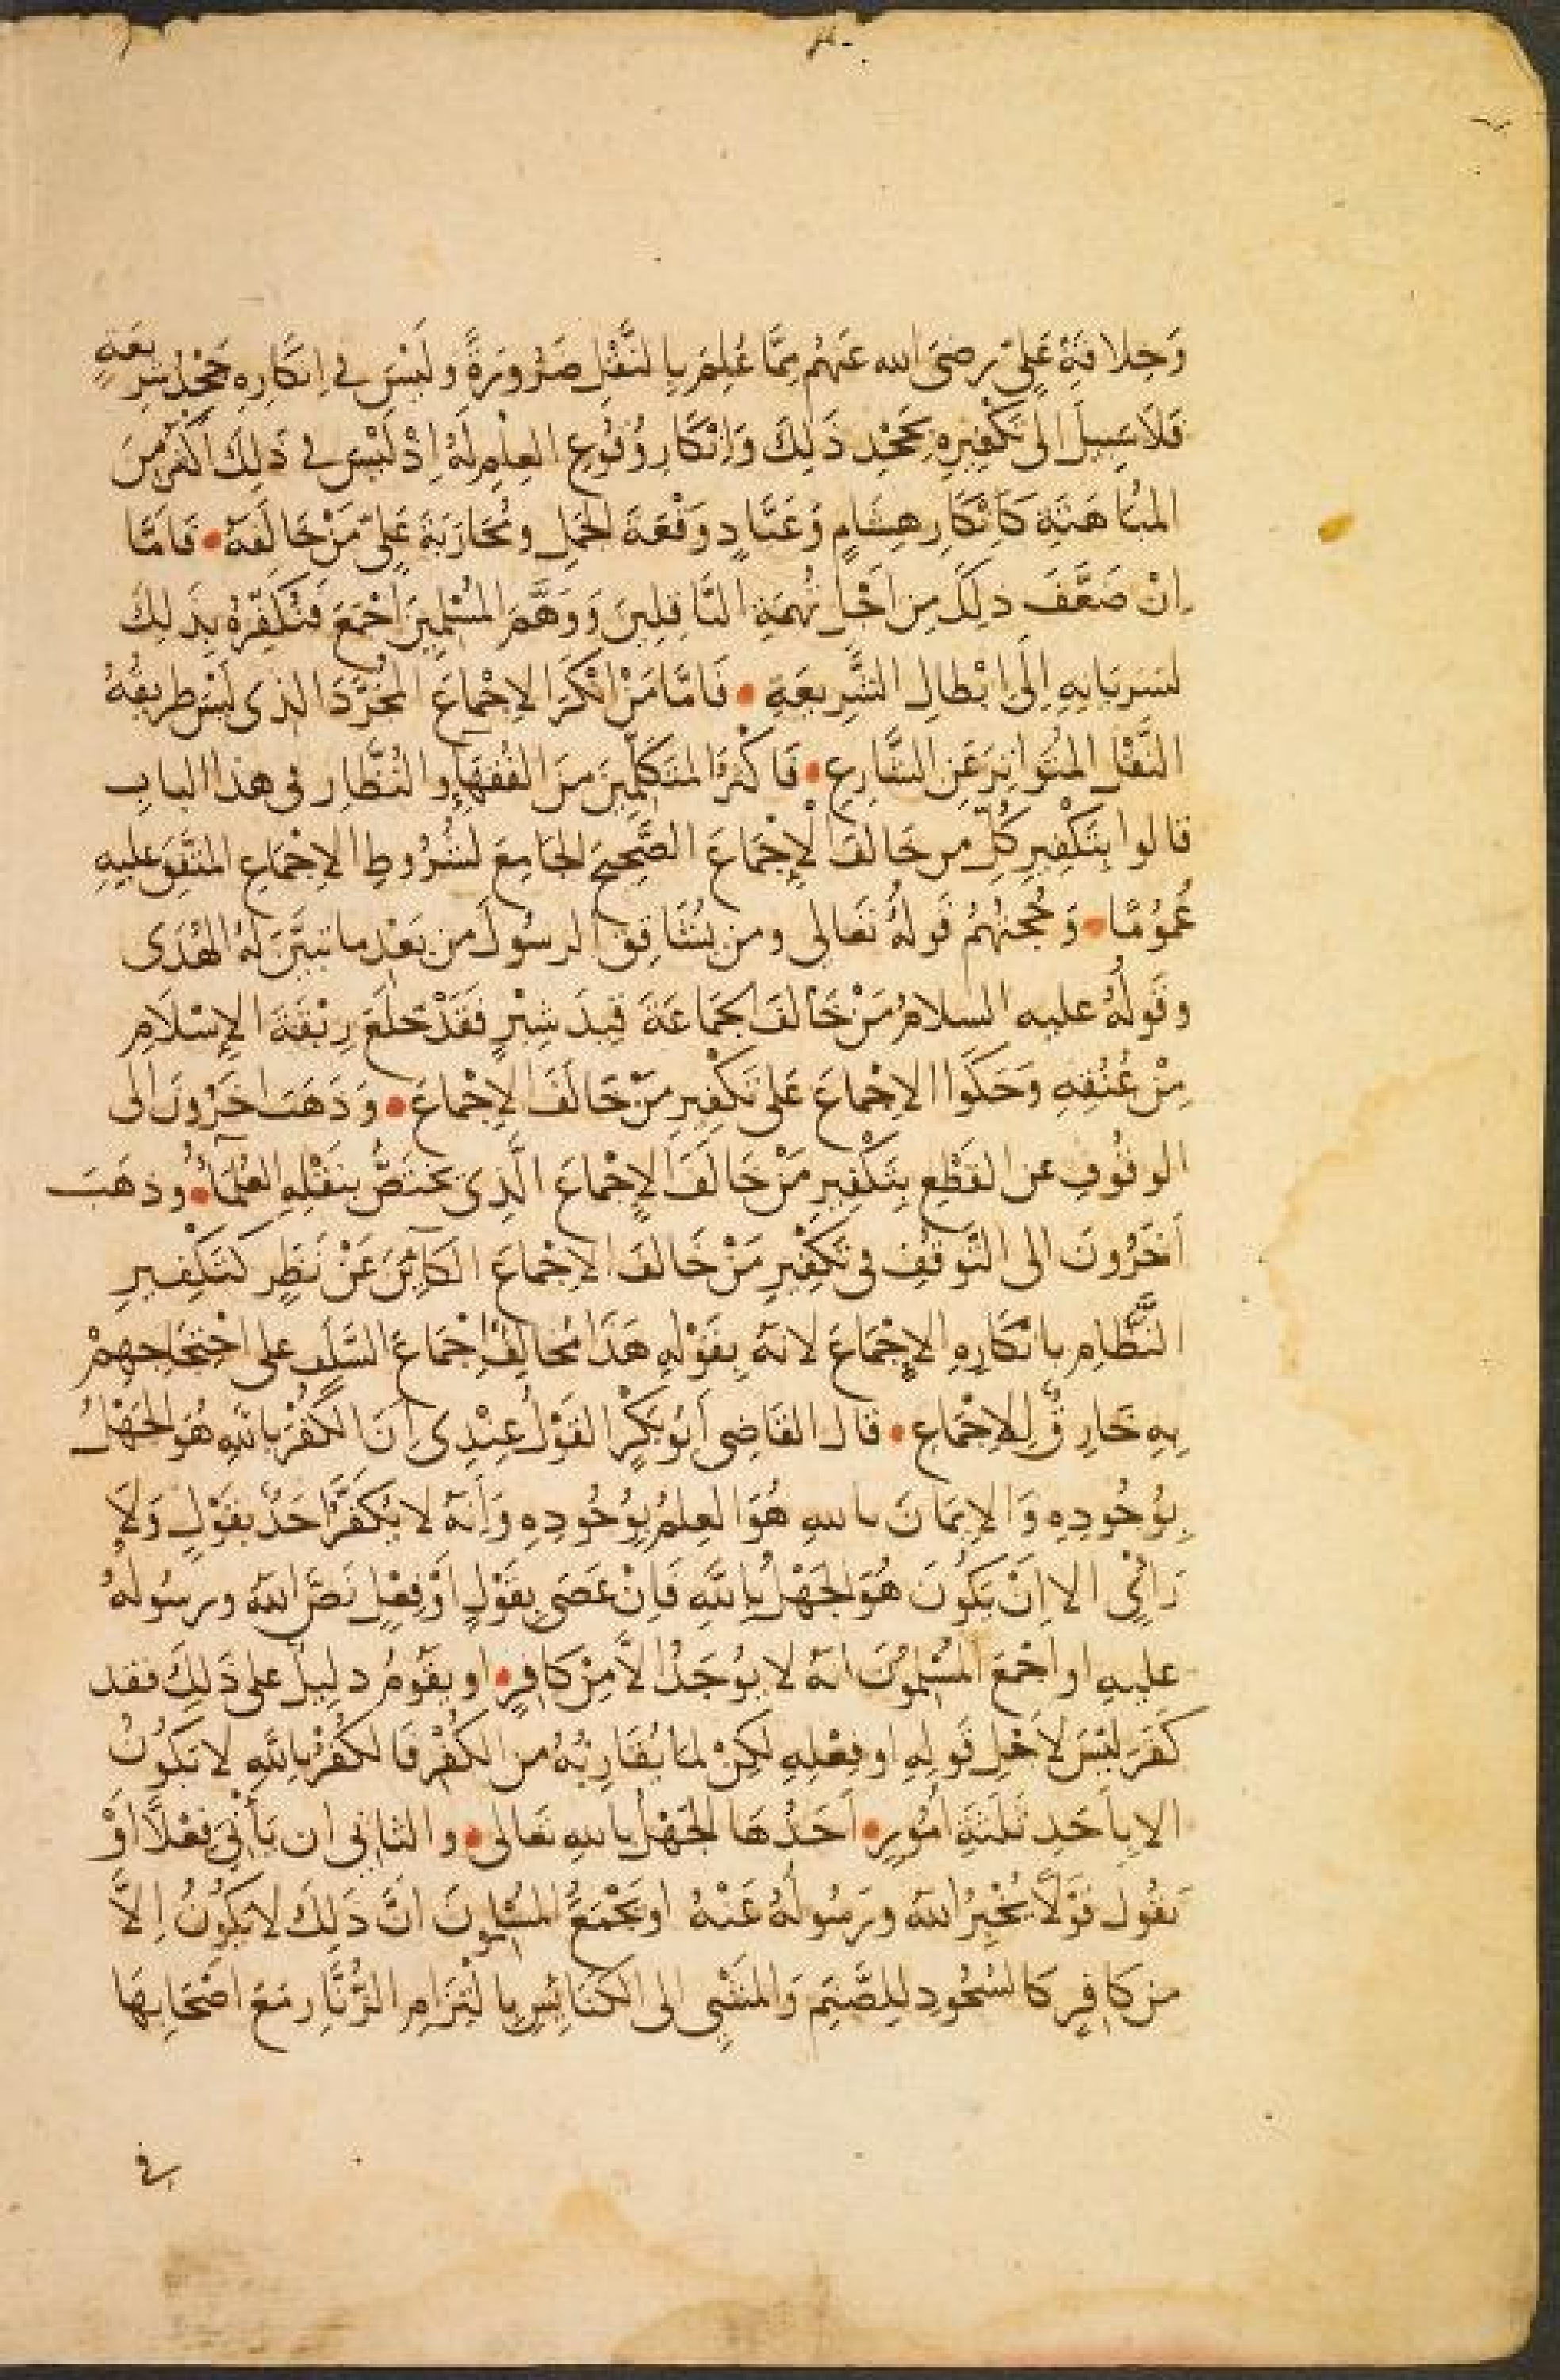 وَخِلَافَةُ عَلِيٍّ رضىَ الله عَنهُم مِمَّا عُلِمَ بِالنَّقْلِ ضَرُورَةً وَلَيْسَ فى اِنكَارِهِ جَحْدُ شَرِيعَةٍ
فَلَا سَبِيلَ الى تَكْفِيرِهِ بِجَحْدِ ذَلِكَ وَاِنْكَارِ وُقُوعِ العِلْمِ لَهُ اِذْ لَيْسَ فى ذَلِكَ اَكْثَرُ مِنَ
المُبَاهَتَةِ كَاِنْكَارِ هِشَامٍ وَعَبَّادٍ وَقْعَةَ الجَمَلِ وَمُحَارَبَةَ عَلِيٍّ مَنْ خَالَفَهُ • فَاَمَّا
اِنْ ضَعَّفَ ذلِكَ مِن اَجْلِ تُهمَةِ النَّاقِلِينَ وَوَهَّمَ المُسْلِمِينَ اَجْمَعَ فَنُكَفِّرُهُ بِذَلِكَ
لسَرَيَانِهِ اِلَى اِبْطَالِ الشَّرِيعَةِ • فَاَمَّا مَنْ اَنْكَرَ الاِجْمَاعَ المُجَرَّدَ الذى لَيْسَ طريقُهُ
النَّقْلَ المُتَوَاتِرَ عَنِ الشَّارِعِ • فَاَكْثَرُ المتَكَلِّمِينَ مِنَ الفُقَهَاءِ والنُّظَّارِ فى هذا البابِ
قالوا بِتَكْفِيرِ كُلِّ من خَالَفَ الْاِجْمَاعَ الصَّحِيحَ الجَامِعَ لشُرُوطِ الاِجْمَاعِ المتَّفَقَ عليهِ
عُمُومًا • وَحُجَّتُهُمْ قَولُهُ تَعَالى ومن يُشَاقِقِ الرسُولَ من بَعْدِ ما تبيَّنَ لَهُ الهُدَى
وقَولُهُ عليه السلامُ مَنْ خَالَفَ الجَمَاعَةَ قِيدَ شِبْرٍ فَقَدْ خَلَعَ رِبْقَةَ الاِسْلَامِ
مِنْ عُنُقِهِ وَحَكَوا الاِجْمَاعَ عَلى تَكْفِيرِ مَنْ خَالَفَ الاِجْمَاعَ • وَذَهَبَ اخَرُونَ الى
الوقُوفِ عن القَطْعِ بِتَكْفِيرِ مَنْ خَالَفَ الاِجْمَاعَ الَّذِى يَختَصُّ بِنَقْلِهِ العُلَمَآءُ • وذهَبَ
آخَرُونَ الى التَّوَقُّفِ فى تَكْفِيرِ مَنْ خَالَفَ الاِجْمَاعَ الكَآئِنَ عَنْ نَظَرٍ كَتَكْفِيرِ
النَّظَّامِ بِاِنْكَارِهِ الاِجْمَاعَ لانَّهُ بِقَوْلِهِ هَذَا مُخَالِفٌ اِجْمَاعَ السَّلَفِ على احْتِجَاجِهِمْ
بِهِ خَارِقٌ لِلاِجْمَاعِ • قال القَاضِى اَبُو بَكْرٍ القَوْلُ عِنْدِى اَنَّ الكُفْرَ بِاللهِ هُوَ الجَهْلُ
بِوُجُودِهِ وَالاِيمَانَ بالله هُوَ العِلْمُ بِوُجُودِهِ وَاَنَّهُ لا يُكَفَّرُ اَحَدٌ بِقَوْلٍ وَلَا
رَأىٍ الا اَنْ يَكُونَ هُوَ الجَهْلُ بِاللهِ فَاِنْ عَصَى بِقَوْلٍ اَوْ فِعْلٍ نَصَّ الله ورسُولُهُ
عليهِ او اَجْمَعَ المُسْلِمُونَ انّهُ لا يُوجَدُ الَّا مِنْ كافِرٍ • او يقُومُ دليلٌ على ذَلِكَ فقد
كَفَرَ ليْسَ لاَجْلِ قَولِهِ او فِعْلِهِ لكِنْ لمَا يُقَارِنُهُ من الكُفْرِ فَالكُفْرُ بِاللهِ لا يَكُونُ
الا بِاَحَدِ ثَلَثَةِ اُمُورٍ • اَحَدُهَا الجَهْلُ بِاللهِ تعَالى • والثانِى ان يَأْتِىَ فِعْلًا اَوْ
يَقُولَ قَوْلًا يُخْبِرُ اللهُ ورَسُولُهُ عَنْهُ او يُجْمِعُ المسْلِمُونَ انَّ ذَلِكَ لا يَكُونُ اِلَّا
من كَافِرٍ كَالسُّجُودِ لِلصَّنَمِ وَالمَشْىِ الى الكَنَائِسِ بِالْتِزَامِ الزُّنَّارِ مَعَ اَصْحَابِهَا
فى